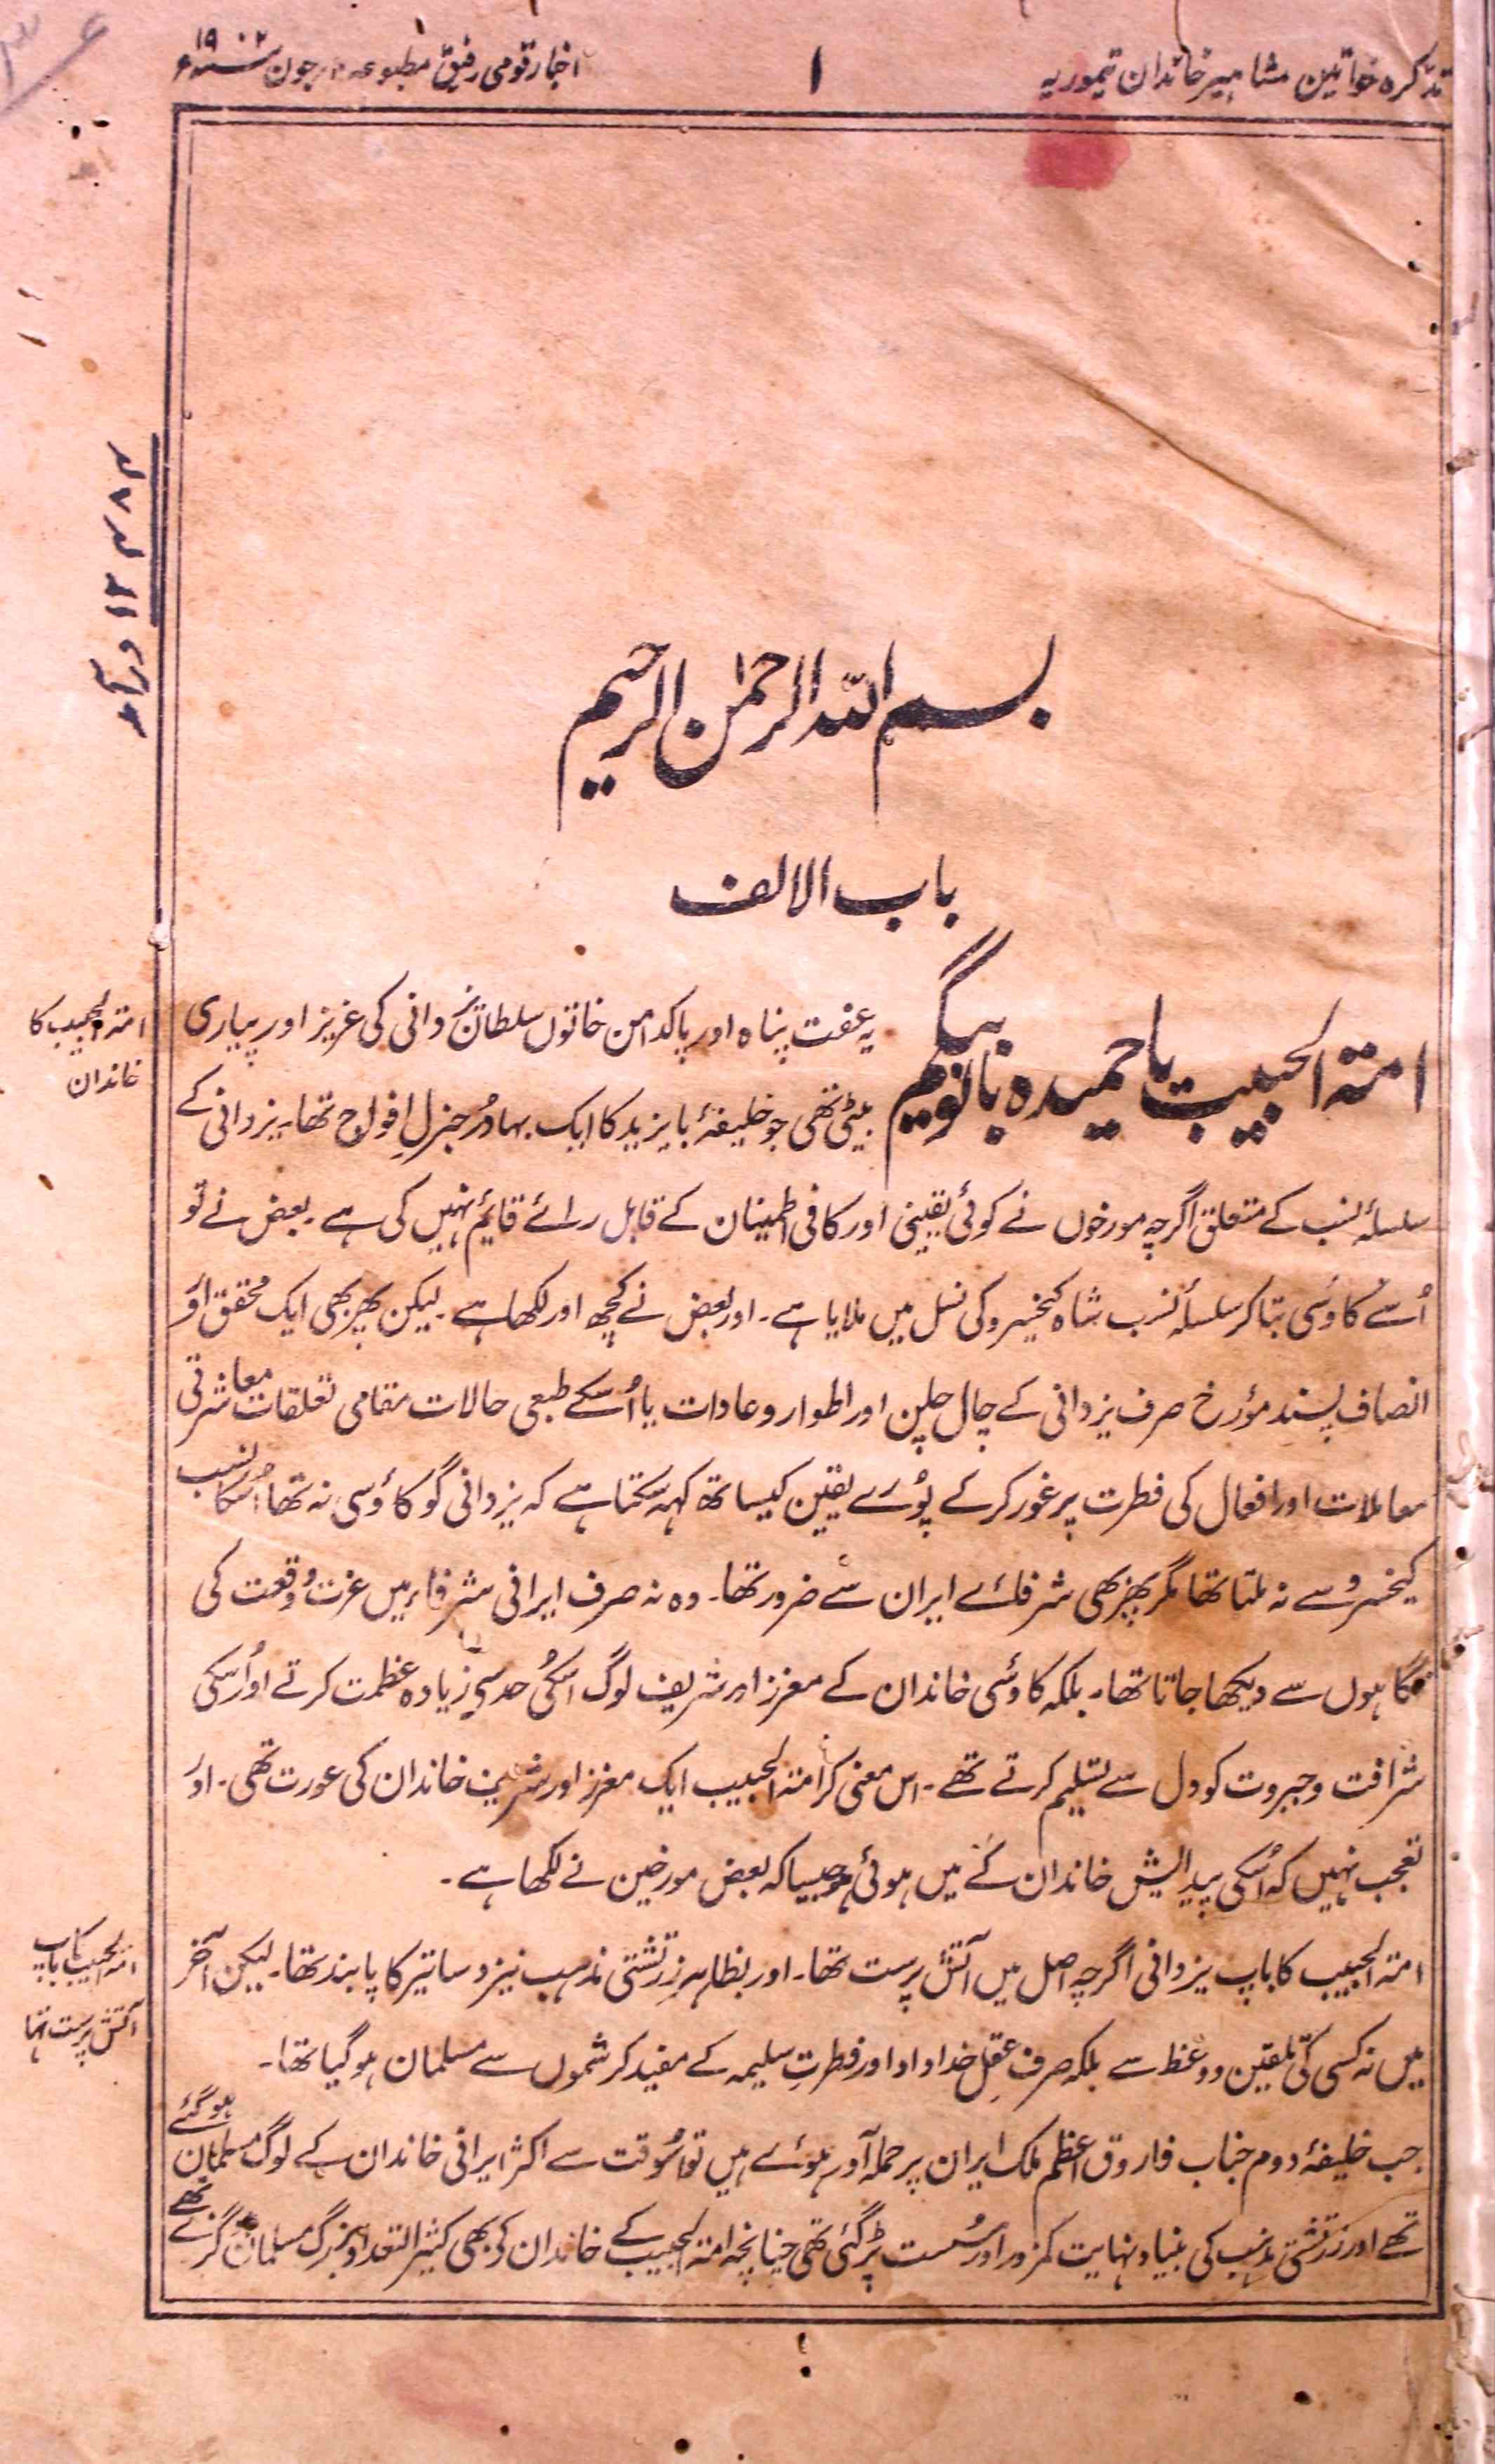 تذکرہ خواتین مشاہیر خاندان تیموریہ
۱
اخبار قومی رفیق مطبوعہ جون ۱۹۰۲ء
بسم اللہ الرحمٰن الرحیم
باب الالف
امتہ الحبیب یا حمیدہ بانو بیگم
یہ عفت پناہ اور پاکدامن خاتون سلطان یزدانی کی عزیز اور پیاری
بیٹی تھی جو خلیفۂ بایزید کا ایک بہادر جنرل افواج تھا۔ یزدانی کے
سلسلۂ نسب کے متعلق اگرچہ مورخوں نے کوئی یقینی اور کافی اطمینان کے قابل رائے قایم نہیں کی ہے۔ بعض نے تو
اُسے کاؤسی بتا کر سلسلۂ نسب شاہ کیخسرو کی نسل میں ملایا ہے۔ اور بعض نے کچھ اور لکھا ہے۔ لیکن پھر بھی ایک محقق اور
انصاف پسند مؤرخ صرف یزدانی کے چال چلن اور اطوار و عادات یا اُسکے طبعی حالات مقامی تعلقات معاشرتی
معاملات اور افعال کی فطرت پر غور کرکے پورے یقین کیساتھ کہہ سکتا ہے کہ یزدانی گو کاؤسی نہ تھا اُسکا نسب
کیخسرو سے نہ ملتا تھا مگر پھر بھی شرفائے ایران سے ضرور تھا۔ وہ نہ صرف ایرانی شرفاء میں عزت و وقعت کی
نگاہوں سے دیکھا جاتا تھا۔ بلکہ کاؤسی خاندان کے معزز اور شریف لوگ اسکی حد سے زیادہ عظمت کرتے اور اُسکی
شرافت و جبروت کو دل سے تسلیم کرتے تھے۔ اس معنی کر امتہ الحبیب ایک معزز اور شریف خاندان کی عورت تھی۔ اور
تعجب نہیں کہ اُسکی پیدایش خاندان کے میں ہوئی ہو جیسا کہ بعض مورخین نے لکھا ہے۔
امتہ الحبیب کا باپ یزدانی اگرچہ اصل میں آتش پرست تھا۔ اور بظاہر زرتشتی مذہب نیز دساتیر کا پابند تھا۔ لیکن آخر
میں نہ کسی کی تلقین و وعظ سے بلکہ صرف عقلِ خداداد اور فطرتِ سلیمہ کے مفید کرشموں سے مسلمان ہوگیا تھا۔
جب خلیفۂ دوم جناب فاروق اعظم ملک ایران پر حملہ آور ہوئے ہیں تو اسوقت سے اکثر ایرانی خاندان کے لوگ مسلمان ہوگئے
تھے اور زرتشتی مذہب کی بنیاد نہایت کمزور اور سُست پڑ گئی تھی چنانچہ امتہ الحبیب کے خاندان کو بھی کثیر التعداد بزرگ مسلمان گزرے تھے
امتہ الحبیب کا
خاندان
امتہ الحبیب کا باپ
آتش پرست تھا